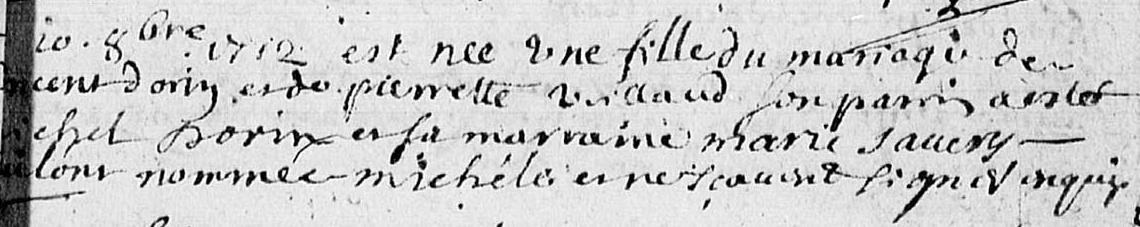 10. 8bre 1712 est nee vne fille du mariage de
vincent dorin et de pierrette villaud son parrin a estes
michel Dorin et sa marraine marie
qui lont nommée michéle et ne scauent signer enquis